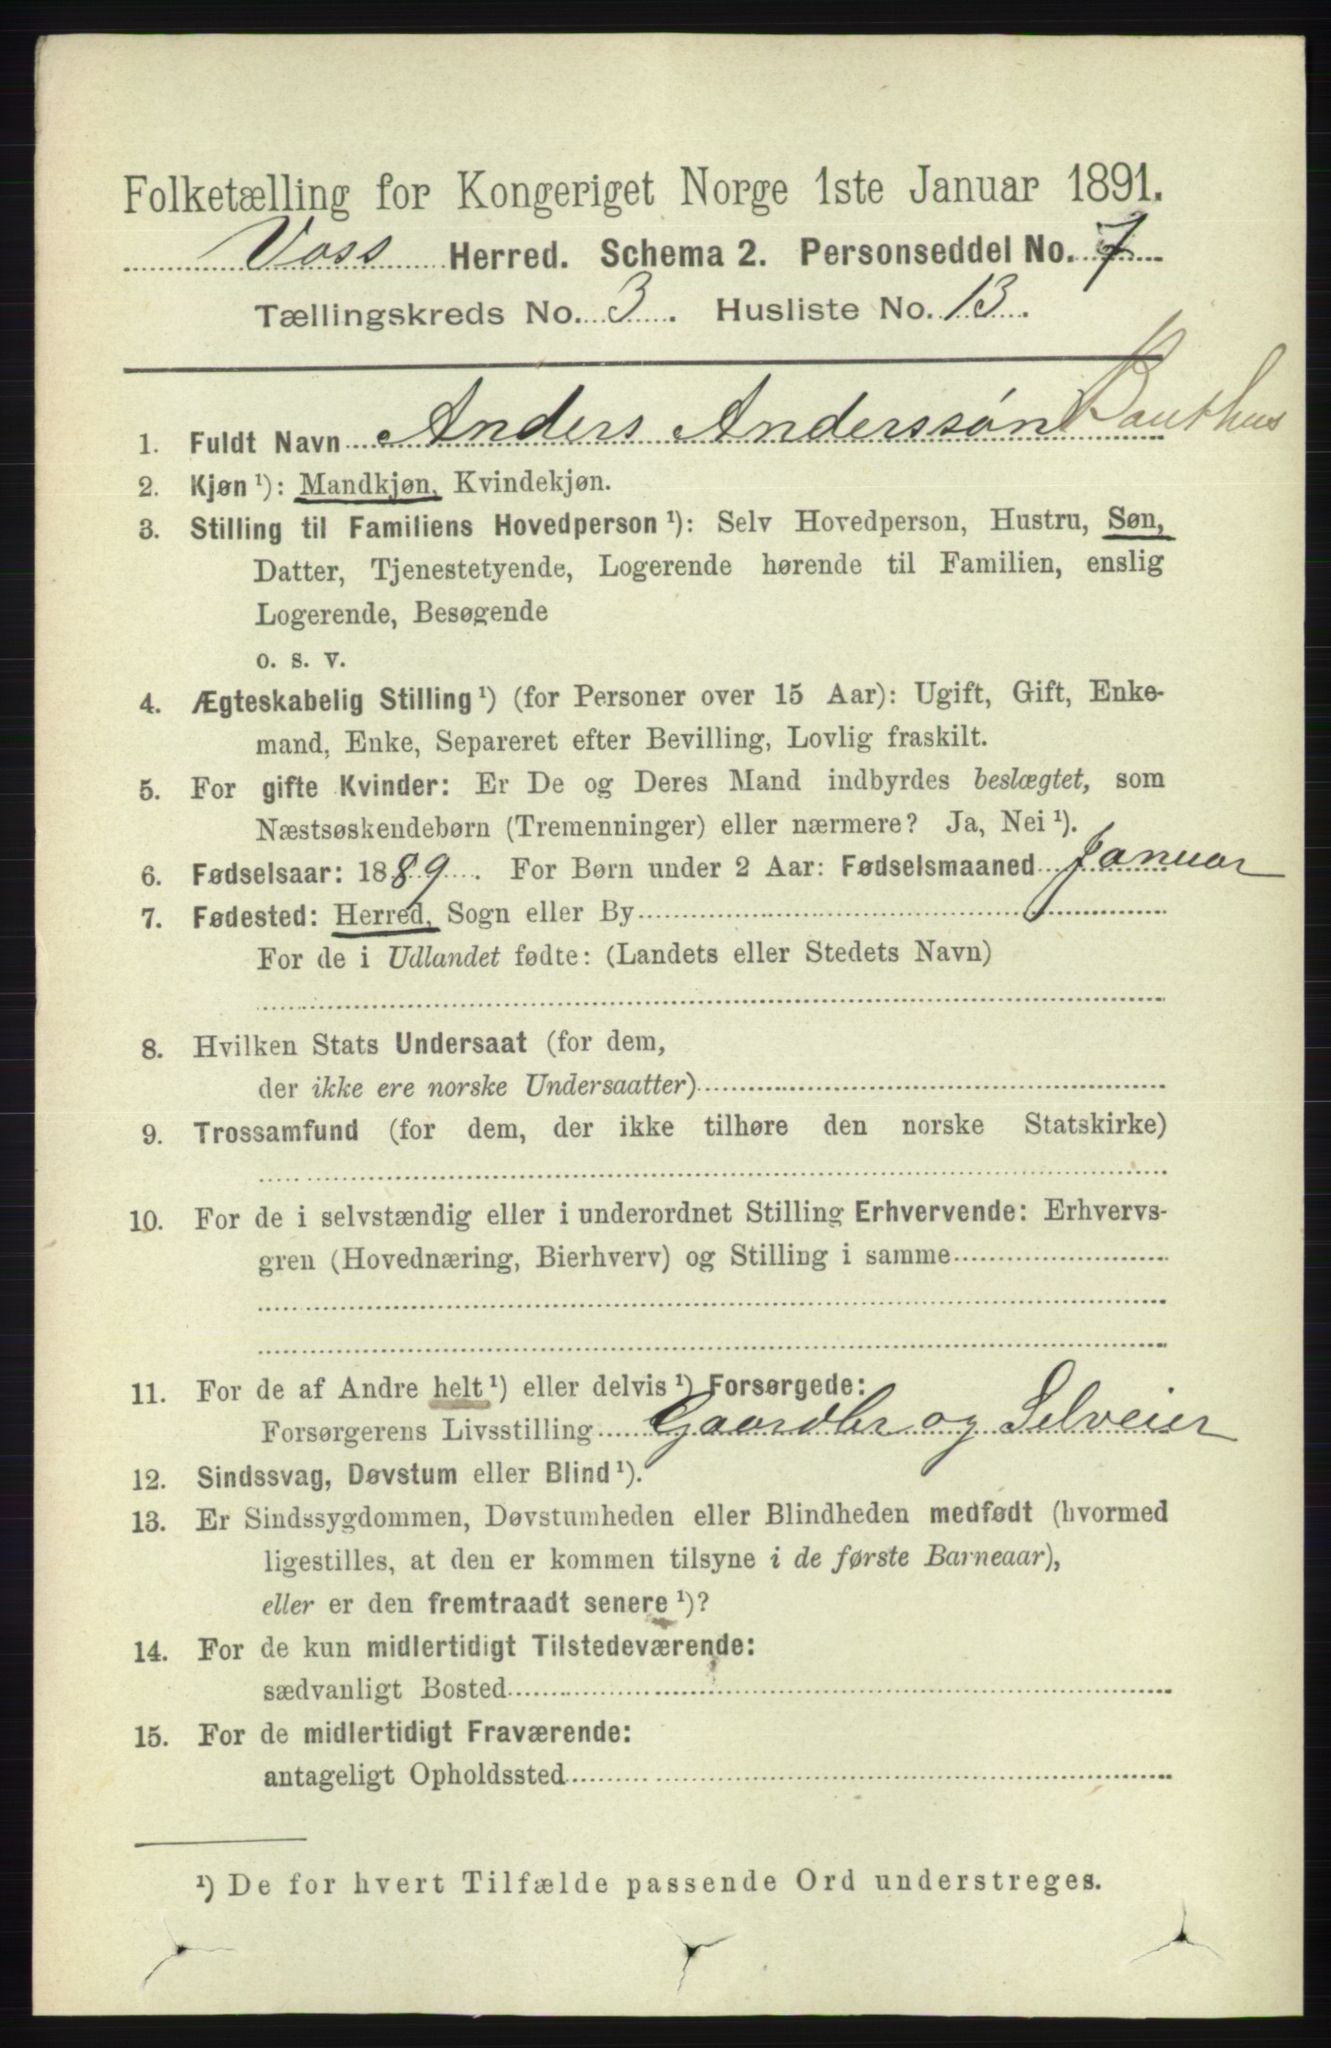 Folketælling for Kongeriget Norge 1ste Januar 1891.
Voss Herred. Schema 2. Personseddel No. 7
Tællingskreds No. 3. Husliste No. 13.
1. Fuldt Navn Anders Anderssøn
2. Kjøn ¹): Mandkjøn, Kvindekjøn.
3. Stilling til Familiens Hovedperson ¹): Selv Hovedperson, Hustru, Søn,
Datter, Tjenestetyende, Logerende hørende til Familien, enslig
Logerende, Besøgende
o. s. v.
4. Ægteskabelig Stilling ¹) (for Personer over 15 Aar): Ugift, Gift, Enke-
mand, Enke, Separeret efter Bevilling, Lovlig fraskilt.
5. For gifte Kvinder: Er De og Deres Mand indbyrdes beslægtet, som
Næstsøskendebørn (Tremenninger) eller nærmere? Ja, Nei ¹).
6. Fødselsaar: 1889. For Børn under 2 Aar: Fødselsmaaned Januar
7. Fødested: Herred, Sogn eller By
For de i Udlandet fødte: (Landets eller Stedets Navn)
8. Hvilken Stats Undersaat (for dem,
der ikke ere norske Undersaatter)
9. Trossamfund (for dem, der ikke tilhøre den norske Statskirke)
10. For de i selvstændig eller i underordnet Stilling Erhvervende: Erhvervs-
gren (Hovednæring, Bierhverv) og Stilling i samme
11. For de af Andre helt ¹) eller delvis ¹) Forsørgede:
Forsørgerens Livsstilling Gaardbr og Selveier
12. Sindssvag, Døvstum eller Blind ¹).
13. Er Sindssygdommen, Døvstumheden eller Blindheden medfødt (hvormed
ligestilles, at den er kommen tilsyne i de første Barneaar),
eller er den fremtraadt senere ¹)?
14. For de kun midlertidigt Tilstedeværende:
sædvanligt Bosted
15. For de midlertidigt Fraværende:
antageligt Opholdssted
¹) De for hvert Tilfælde passende Ord understreges.